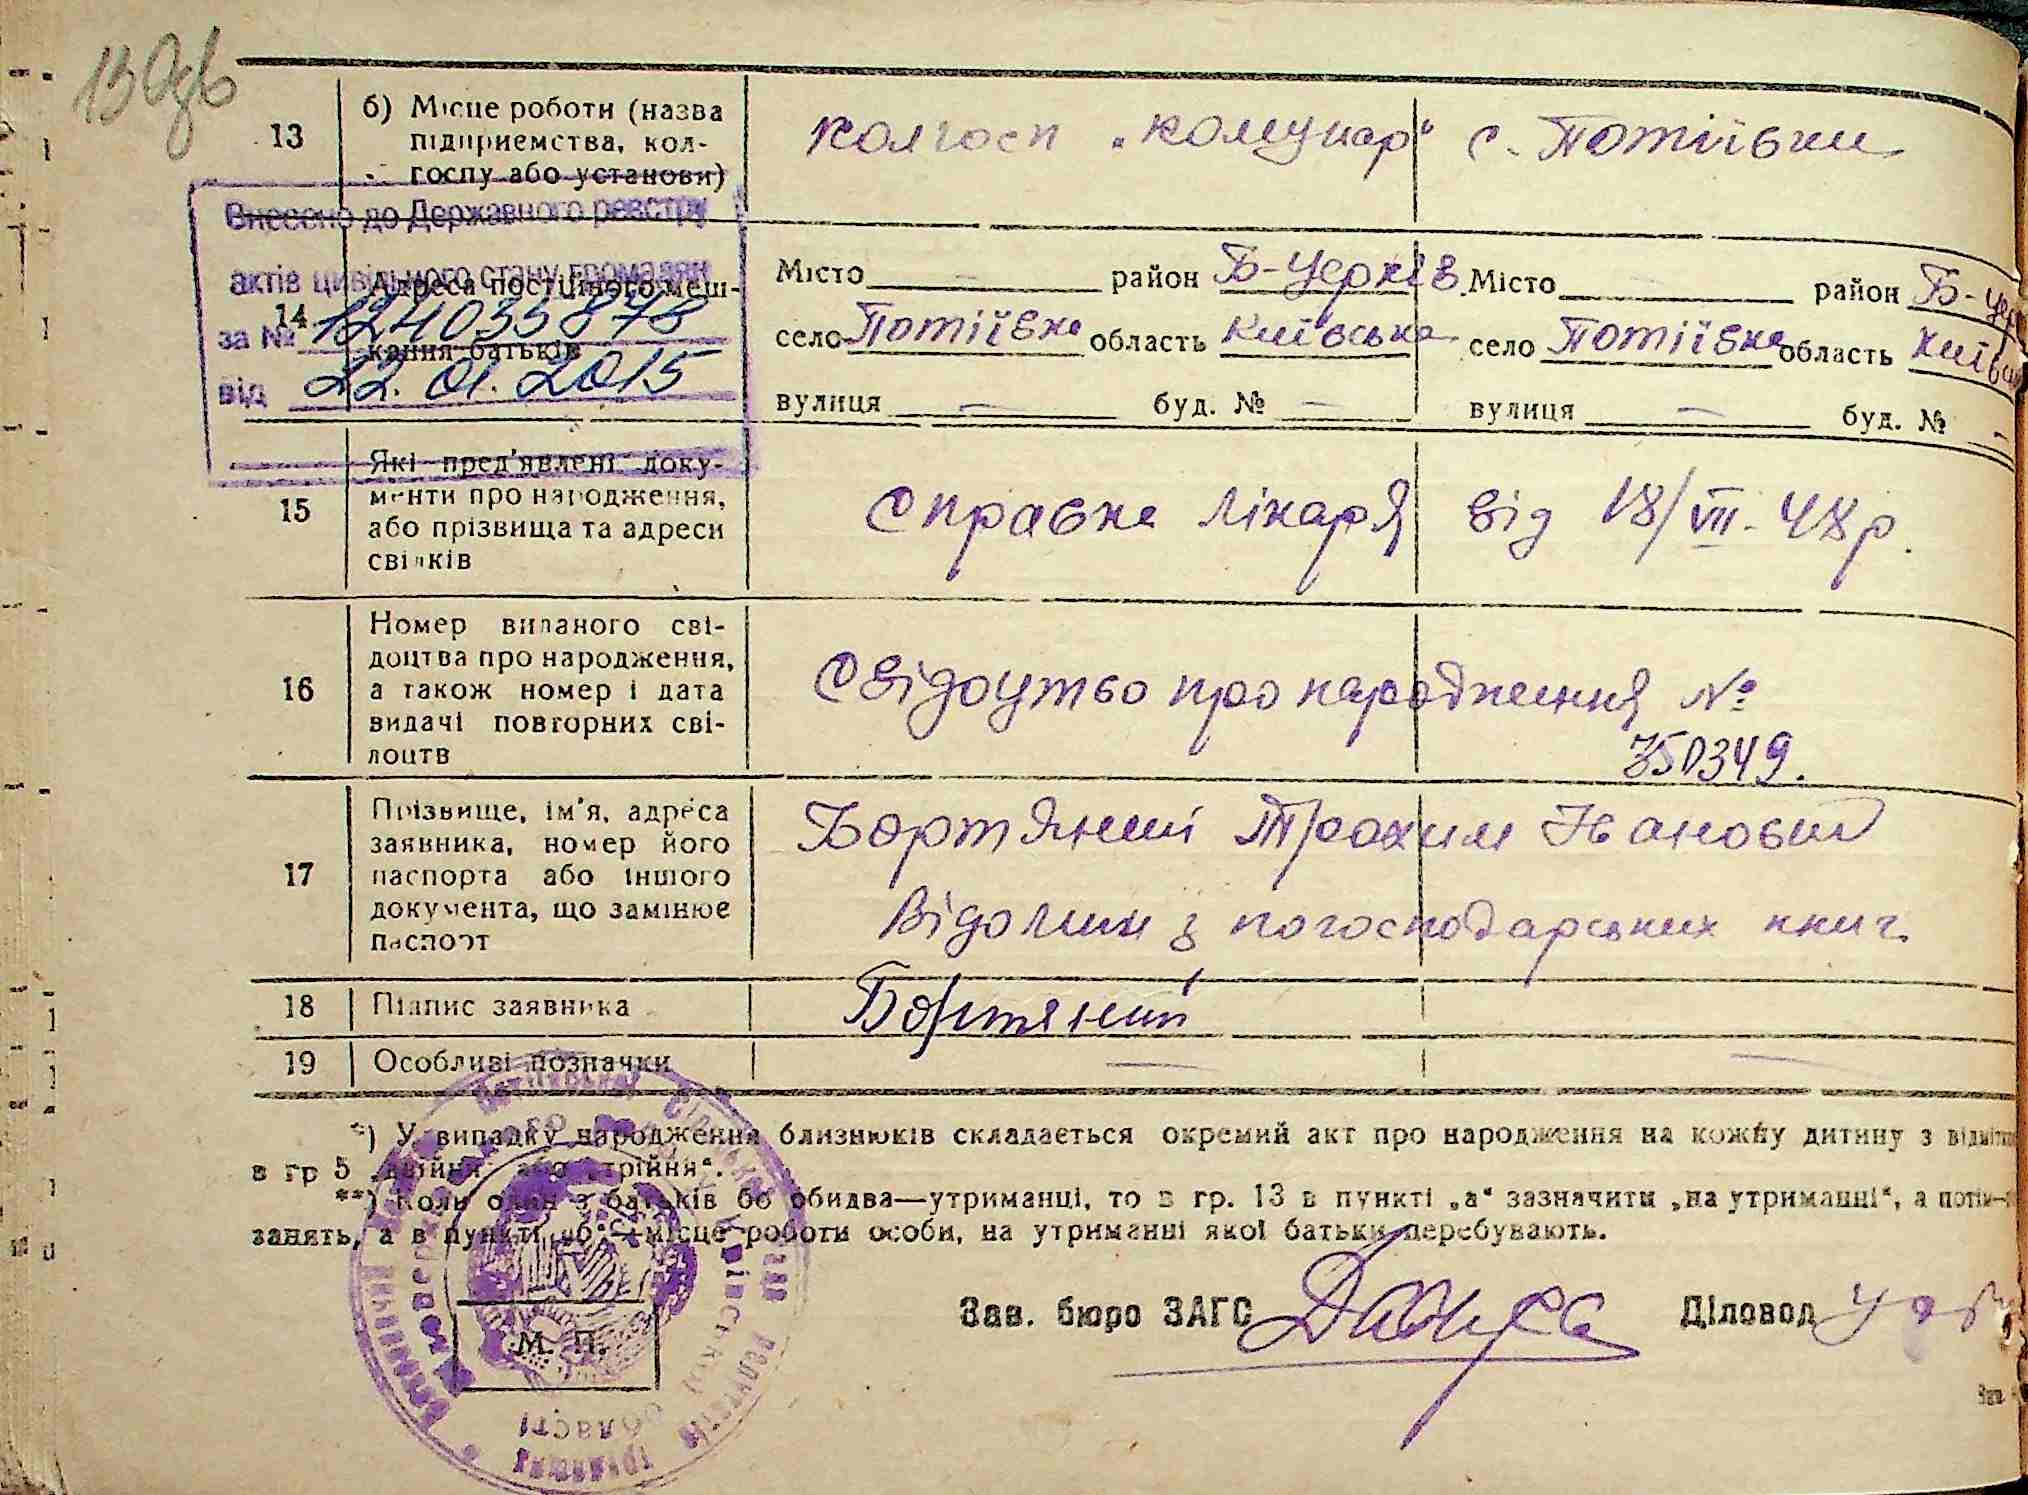 13 б) Місце роботи (назва
підприємства, кол-
госпу або установи)
колгосп „Комунар“ с. Потіївки
Внесено до Державного реєстру
актів цивільного стану громадян
за № 124035878
від 22.01.2015
14 Адреса постійного меш-
кання батьків
Місто — район Б-Церків
село Потіївка область Київська
вулиця — буд. № —
Місто район Б-Цер
село Потіївка область Київсь
вулиця — буд. № —
15 Які пред'явлені доку-
менти про народження,
або прізвища та адреси
свідків
Справка лікаря від 18/VII-48р.
16 Номер виданого сві-
доцтва про народження,
а також номер і дата
видачі повторних сві-
доцтв
Свідоцтво про народження №
350349.
17 Прізвище, ім'я, адреса
заявника, номер його
паспорта або іншого
документа, що замінює
паспорт
Бортяний Трохим Іванович
Відомий з погосподарських книг.
18 Підпис заявника
Бортяний
19 Особливі позначки — —
*) У випадку народження близнюків складається окремий акт про народження на кожну дитину з відмітк
в гр 5 „двійня“ або „трійня“.
**) Коли один з батьків бо обидва—утриманці, то в гр. 13 в пункті „а“ зазначити „на утриманні“, а потім—
занять, а в пункті „б“—місце роботи особи, на утриманні якої батьки перебувають.
Зав. бюро ЗАГС Діловод
М. П.
області